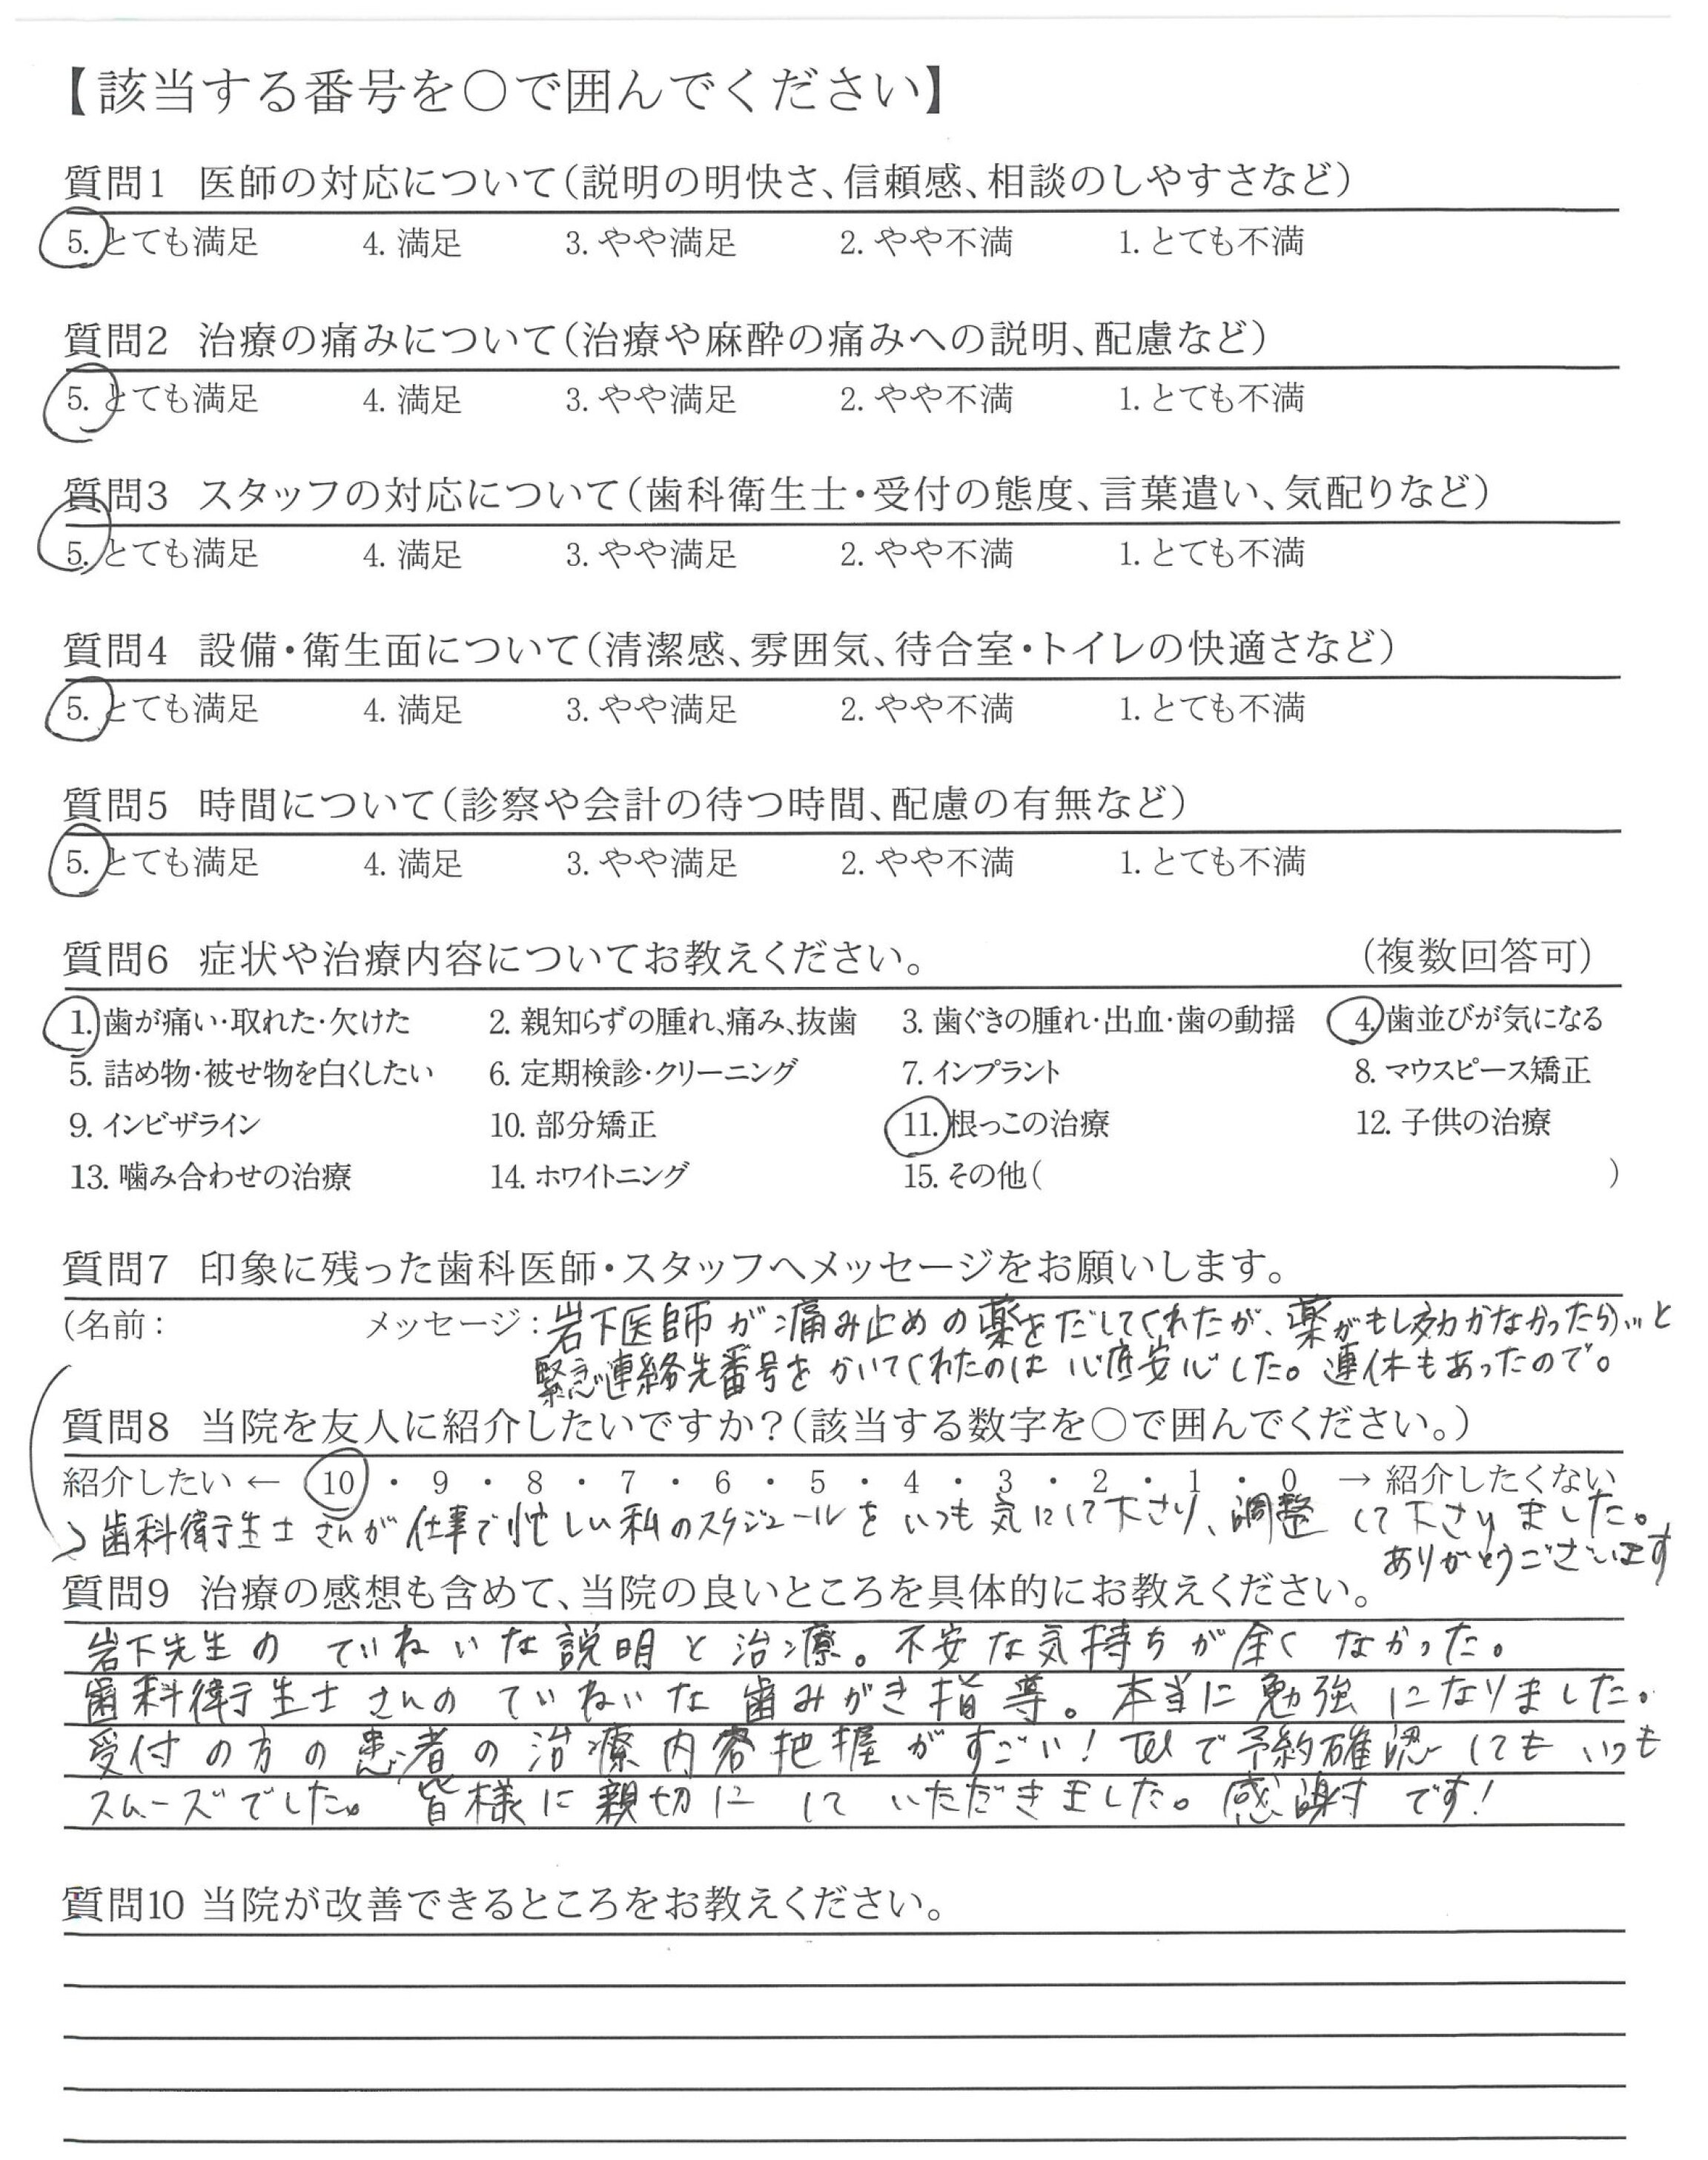 【該当する番号を〇で囲んでください】
質問1 医師の対応について(説明の明快さ、信頼感、相談のしやすさなど)
5. とても満足 4. 満足 3. やや満足 2. やや不満 1. とても不満
質問2 治療の痛みについて(治療や麻酔の痛みへの説明、配慮など)
5. とても満足 4. 満足 3. やや満足 2. やや不満 1. とても不満
質問3 スタッフの対応について(歯科衛生士・受付の態度、言葉遣い、気配りなど)
5. とても満足 4. 満足 3. やや満足 2. やや不満 1. とても不満
質問4 設備・衛生面について(清潔感、雰囲気、待合室・トイレの快適さなど)
5. とても満足 4. 満足 3. やや満足 2. やや不満 1. とても不満
質問5 時間について(診察や会計の待つ時間、配慮の有無など)
5. とても満足 4. 満足 3. やや満足 2. やや不満 1. とても不満
質問6 症状や治療内容についてお教えください。 (複数回答可)
1. 歯が痛い・取れた・欠けた 2. 親知らずの腫れ、痛み、抜歯 3. 歯ぐきの腫れ・出血・歯の動揺 4. 歯並びが気になる
5. 詰め物・被せ物を白くしたい 6. 定期検診・クリーニング 7. インプラント 8. マウスピース矯正
9. インビザライン 10. 部分矯正 11. 根っこの治療 12. 子供の治療
13. 噛み合わせの治療 14. ホワイトニング 15. その他( )
質問7 印象に残った歯科医師・スタッフへメッセージをお願いします。
(名前: メッセージ:岩下医師が痛み止めの薬をだしてくれたが、薬がもし効かなかったら…と
緊急連絡先番号をかいてくれたのは心底安心した。連休もあったので。
質問8 当院を友人に紹介したいですか?(該当する数字を〇で囲んでください。)
紹介したい ← 10 ・ 9 ・ 8 ・ 7 ・ 6 ・ 5 ・ 4 ・ 3 ・ 2 ・ 1 ・ 0 → 紹介したくない
歯科衛生士さんが仕事で忙しい私のスケジュールをいつも気にして下さり、調整して下さりました。
ありがとうございます
質問9 治療の感想も含めて、当院の良いところを具体的にお教えください。
岩下先生のていねいな説明と治療。不安な気持ちが全くなかった。
歯科衛生士さんのていねいな歯みがき指導。本当に勉強になりました。
受付の方の患者の治療内容把握がすごい!Telで予約確認してもいつも
スムーズでした。皆様に親切にしていただきました。感謝です!
質問10 当院が改善できるところをお教えください。